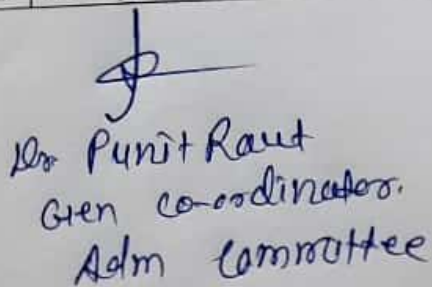 Dr Punit Raut
Gen co-ordinator.
Adm Committee